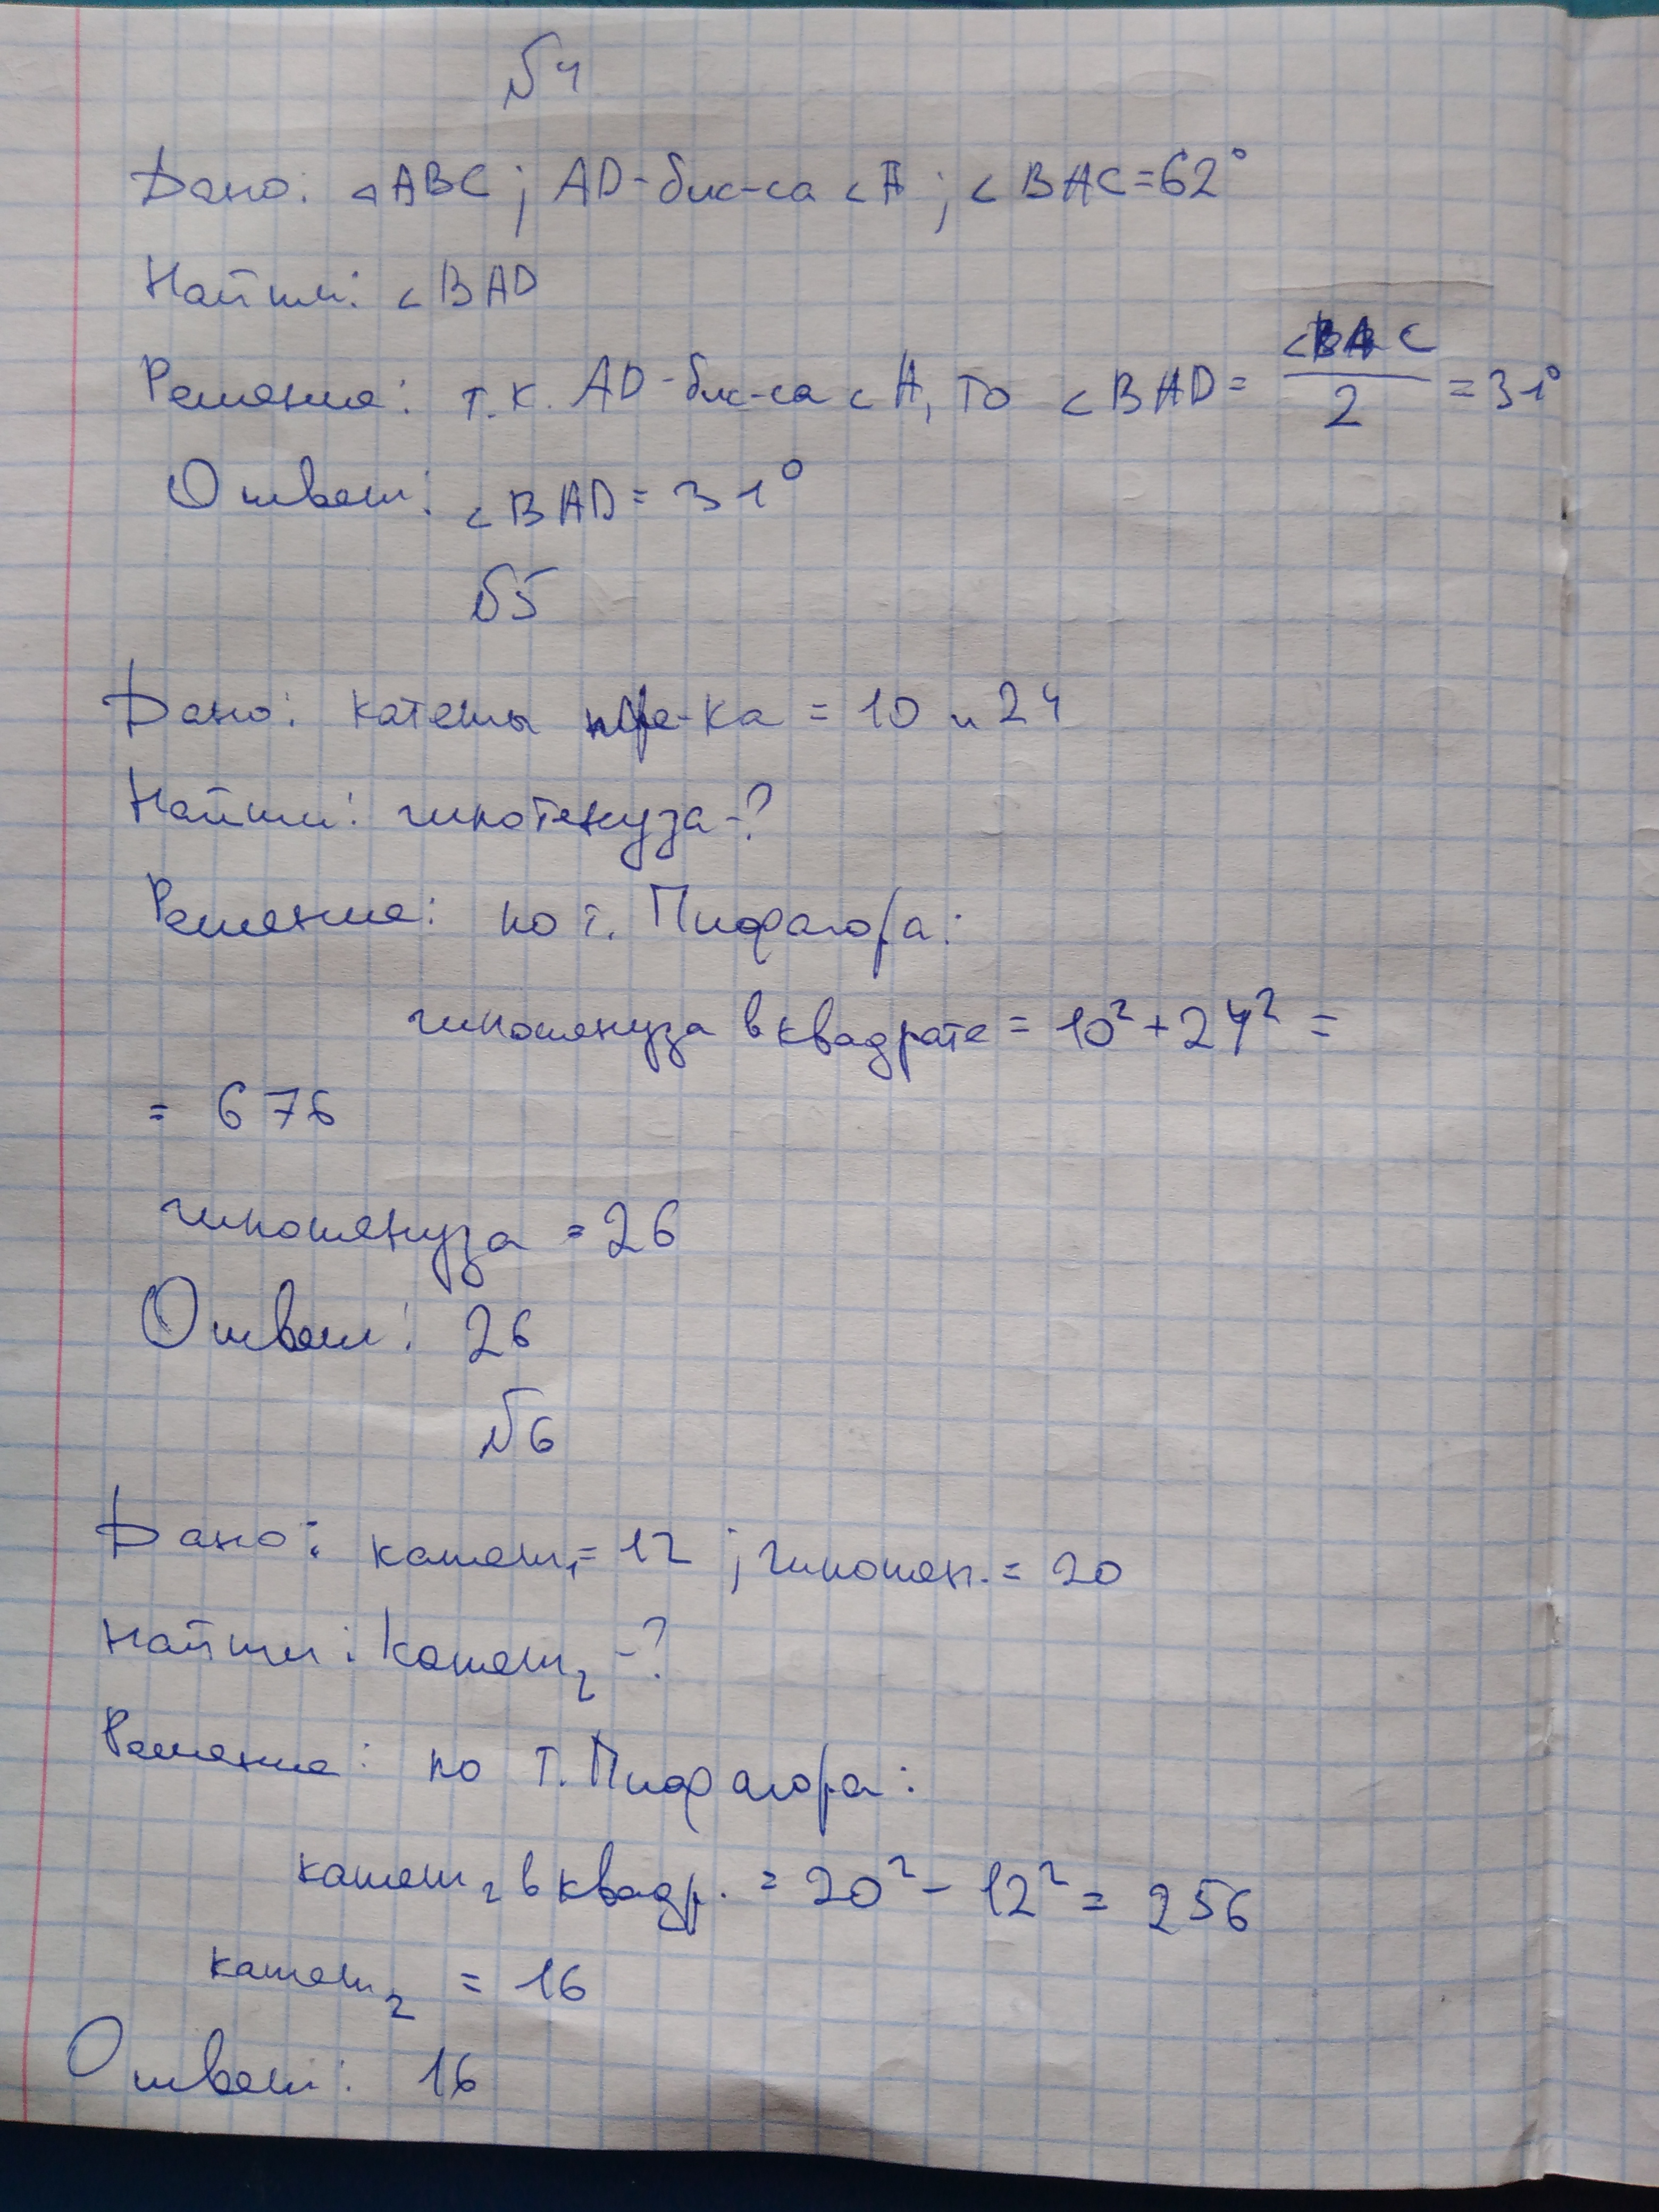 №4
Дано: △ABC; AD-бис-са ∠A; ∠BAC=62°
Найти: ∠BAD
Решение: т.к. AD-бис-са ∠A, то ∠BAD = ∠BAC/2 = 31°
Ответ: ∠BAD = 31°
№5
Дано: катеты -ка = 10 и 24
Найти: гипотенуза-?
Решение: по т. Пифагора:
гипотенуза в квадрате = 10² + 24² =
= 676
гипотенуза = 26
Ответ: 26
№6
Дано: катет₁ = 12; гипотен. = 20
Найти: катет₂ -?
Решение: по т. Пифагора:
катет₂ в квадр. = 20² - 12² = 256
катет₂ = 16
Ответ: 16